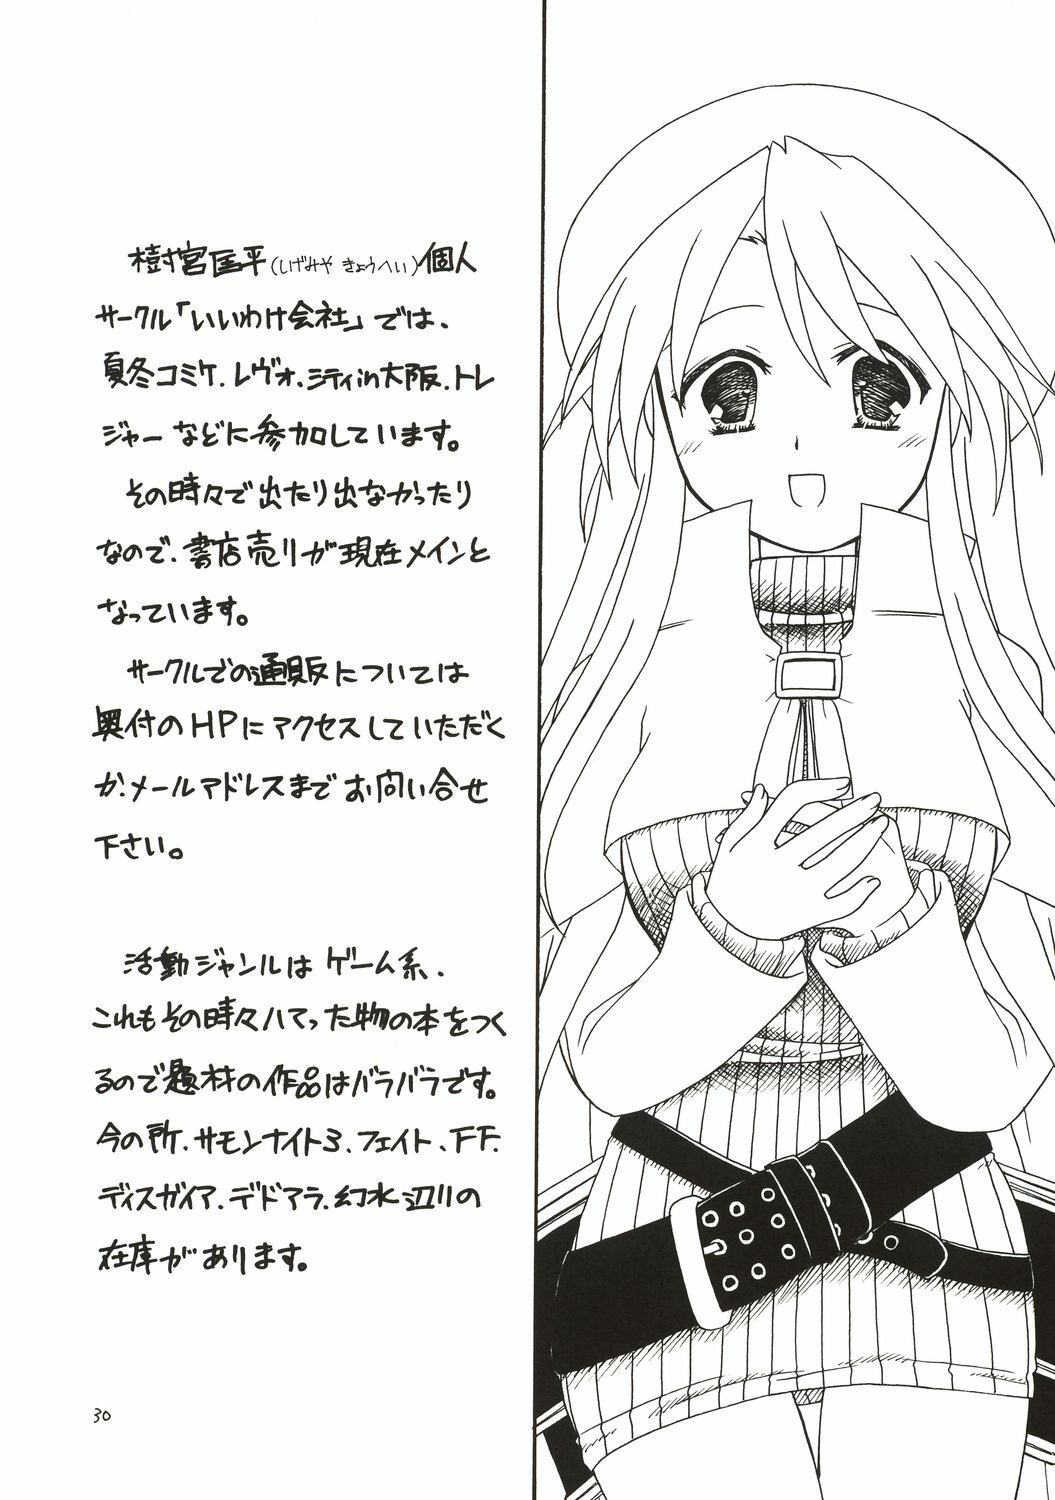 樹宮匡平(しげみや きょうへい)個人
サークル「いいわけ会社」では、
夏冬コミケ、レヴォ、シティin大阪、トレ
ジャーなどに参加しています。
その時々で出たり出なかったり
なので、書店売りが現在メインと
なっています。
サークルでの通販については
奥付のHPにアクセスしていただく
か、メールアドレスまでお問い合せ
下さい。
活動ジャンルはゲーム系、
これもその時々ハマった物の本をつく
るので題材の作品はバラバラです。
今の所、サモンナイト3、フェイト、FF、
ディスガイア、デドアラ、幻水辺りの
在庫があります。
30